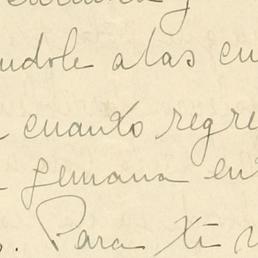 ndole a las cu
cuanto regre
semana en
Para ti